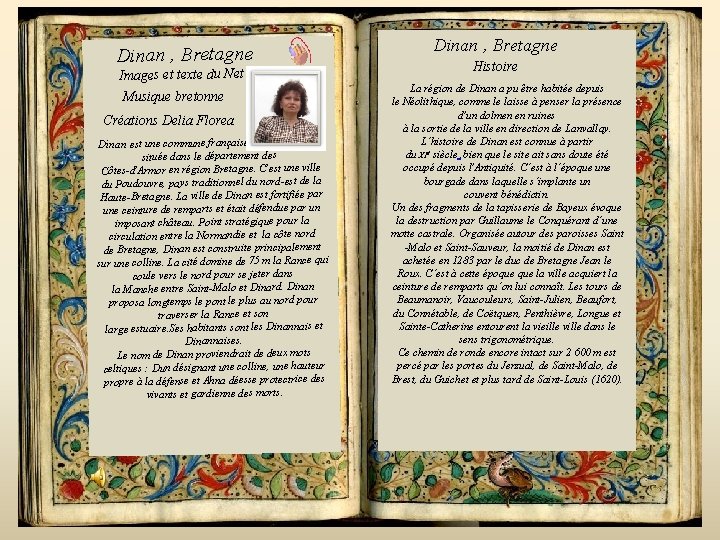 Dinan , Bretagne
Images et texte du Net
Musique bretonne
Créations Delia Florea
Dinan est une commune française
située dans le département des
Côtes-d'Armor en région Bretagne. C'est une ville
du Poudouvre, pays traditionnel du nord-est de la
Haute-Bretagne. La ville de Dinan est fortifiée par
une ceinture de remparts et était défendue par un
imposant château. Point stratégique pour la
circulation entre la Normandie et la côte nord
de Bretagne, Dinan est construite principalement
sur une colline. La cité domine de 75 m la Rance qui
coule vers le nord pour se jeter dans
la Manche entre Saint-Malo et Dinard. Dinan
proposa longtemps le pont le plus au nord pour
traverser la Rance et son
large estuaire.Ses habitants sont les Dinannais et
Dinannaises.
Le nom de Dinan proviendrait de deux mots
celtiques : Dun désignant une colline, une hauteur
propre à la défense et Ahna déesse protectrice des
vivants et gardienne des morts.
Dinan , Bretagne
Histoire
La région de Dinan a pu être habitée depuis
le Néolithique, comme le laisse à penser la présence
d'un dolmen en ruines
à la sortie de la ville en direction de Lanvallay.
L'histoire de Dinan est connue à partir
du XIe siècle, bien que le site ait sans doute été
occupé depuis l'Antiquité. C'est à l'époque une
bourgade dans laquelle s'implante un
couvent bénédictin.
Un des fragments de la tapisserie de Bayeux évoque
la destruction par Guillaume le Conquérant d'une
motte castrale. Organisée autour des paroisses Saint
-Malo et Saint-Sauveur, la moitié de Dinan est
achetée en 1283 par le duc de Bretagne Jean le
Roux. C'est à cette époque que la ville acquiert la
ceinture de remparts qu'on lui connaît. Les tours de
Beaumanoir, Vaucouleurs, Saint-Julien, Beaufort,
du Connétable, de Coëtquen, Penthièvre, Longue et
Sainte-Catherine entourent la vieille ville dans le
sens trigonométrique.
Ce chemin de ronde encore intact sur 2 600 m est
percé par les portes du Jerzual, de Saint-Malo, de
Brest, du Guichet et plus tard de Saint-Louis (1620).